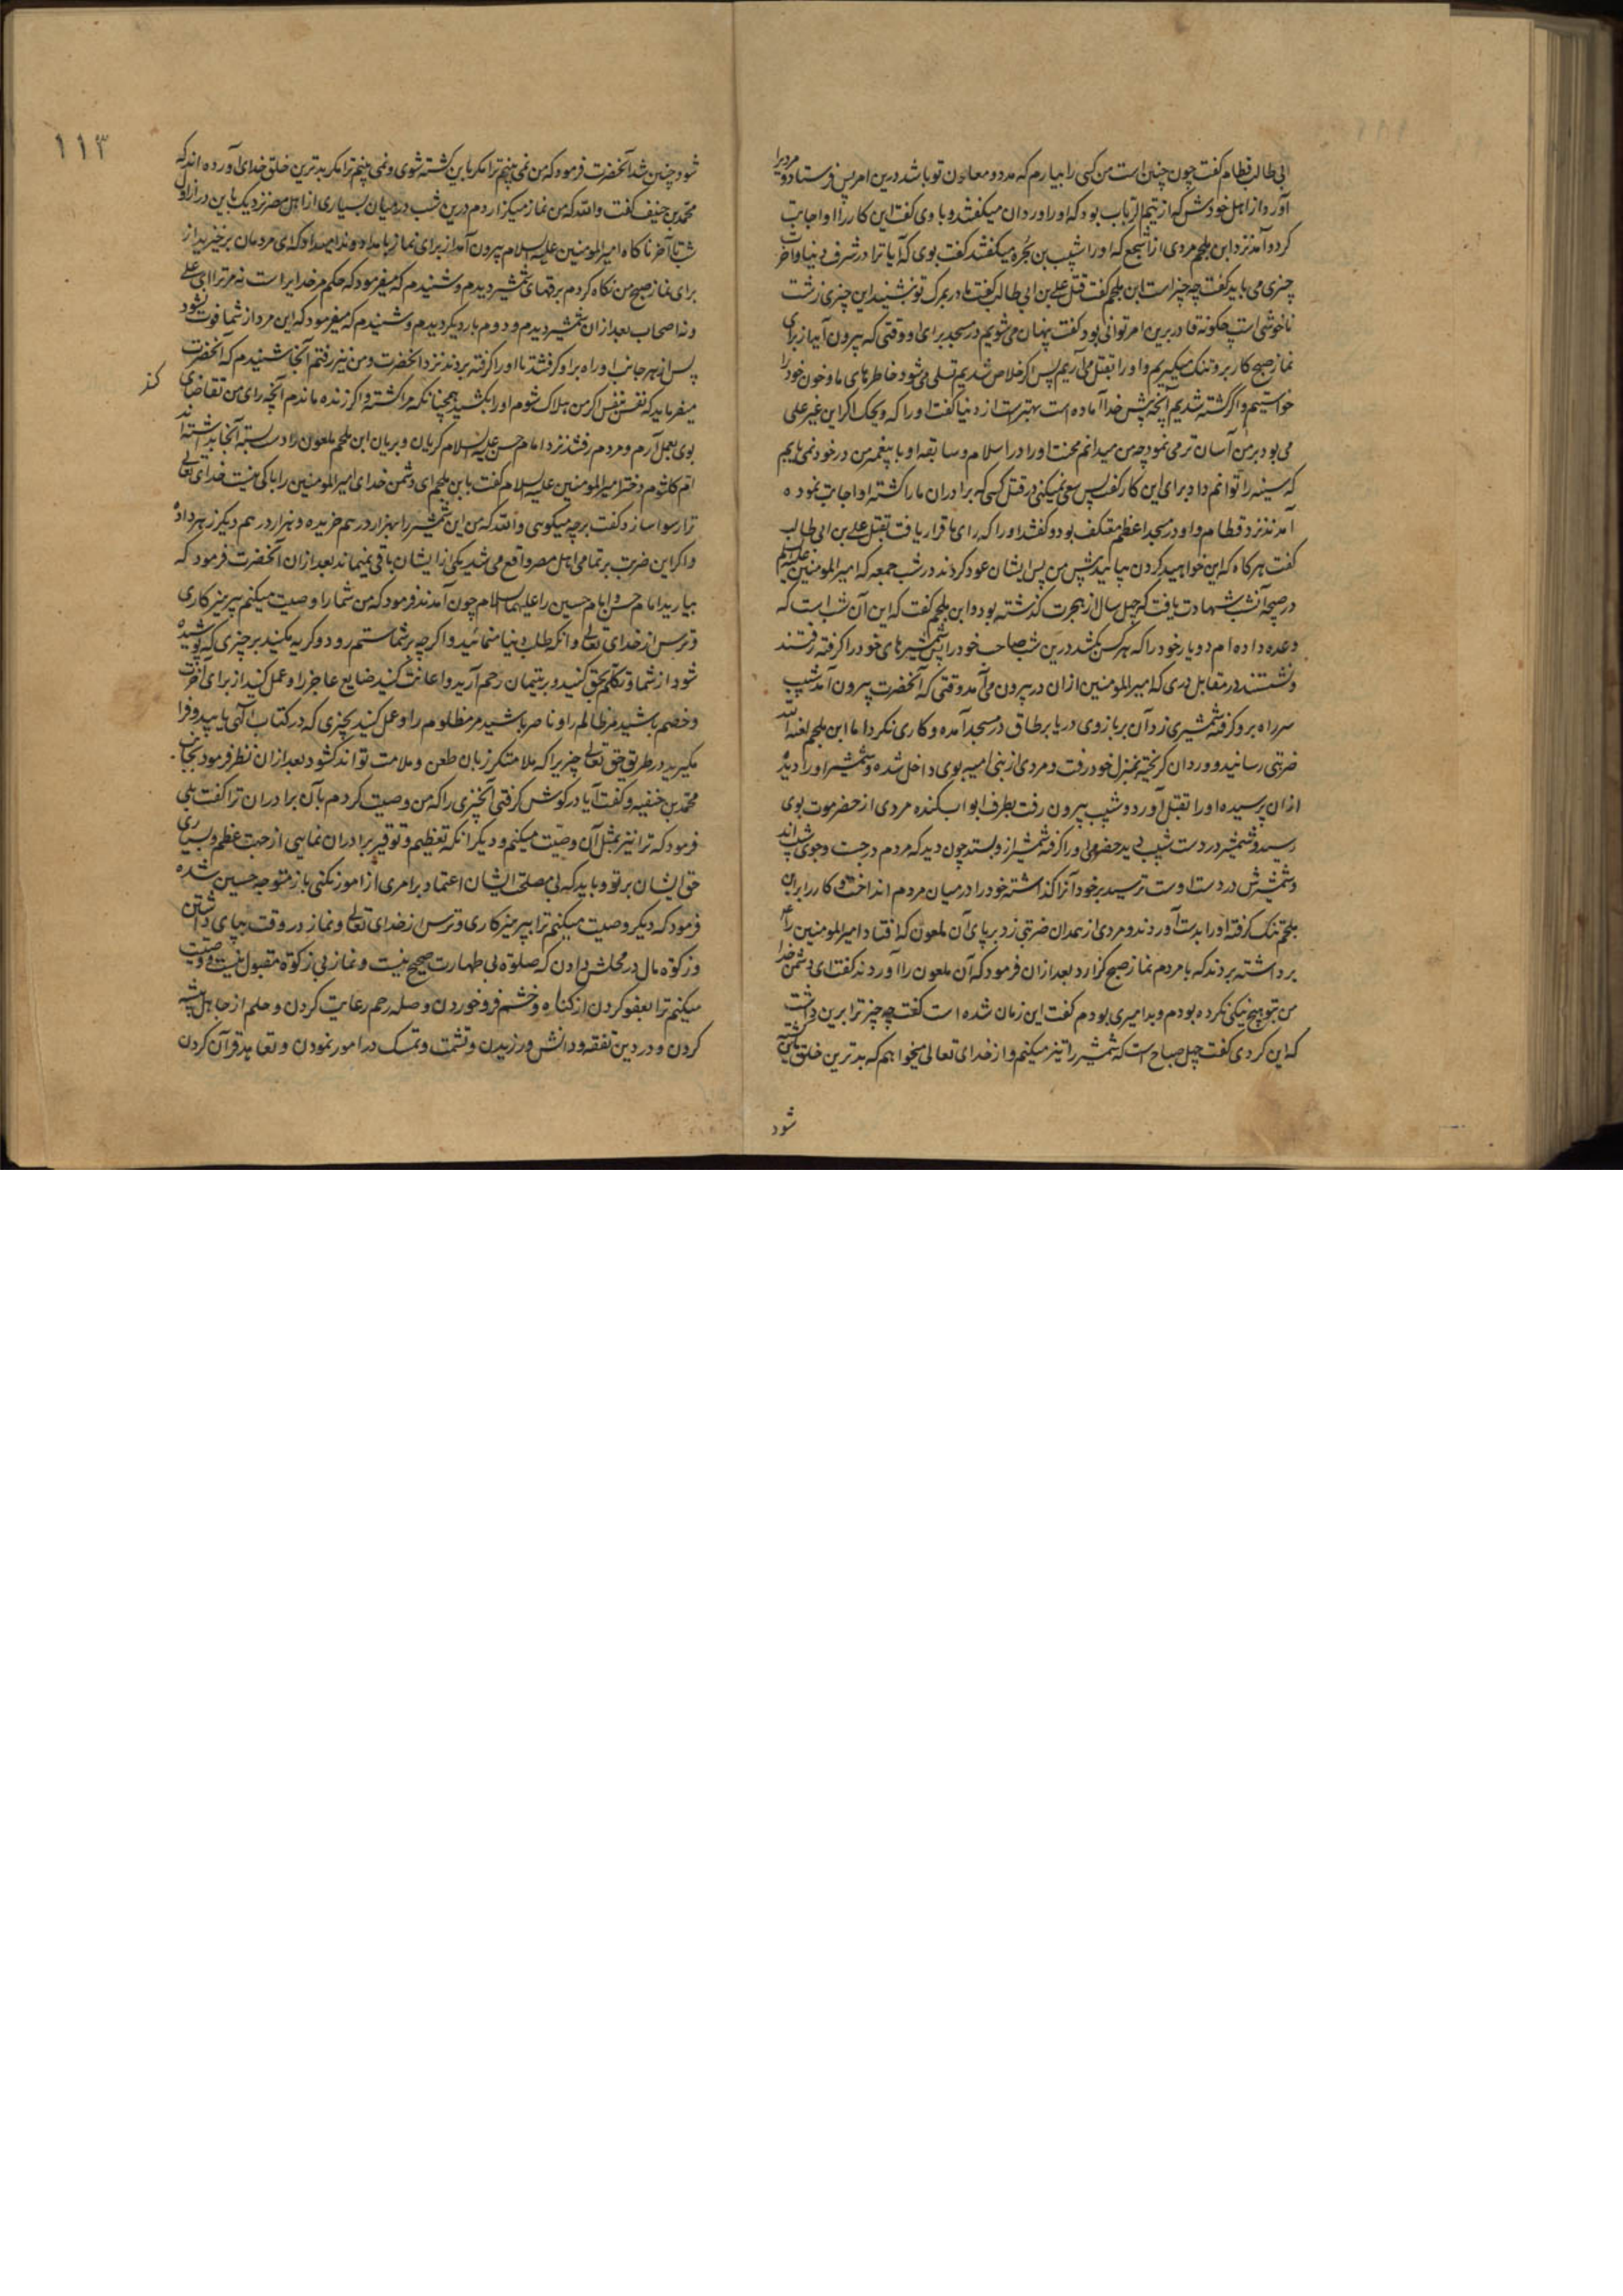 ابی طالب قطام گفت چون چنین است من کسی را بیارم که مدد و معاون تو باشد درین امر پس فرستاد و مردیرا
آورد از اهل خودش که از تیم الرباب بود که او را وردان میکفتند و با وی کفت این کار را او اجابت
کرد و آمد نزد ابن ملجم مردی از اشجع که او را شبیب بن بجره میکفتند کفت بوی که آیا ترا در شرف دنیا و آخرت
چیزی می باید کفت چه چیز است ابن ملجم کفت قتل علی بن ابی طالب کفت مادر بمرک تو نشیند این چیزی زشت
ناخوشی است چکونه قادر برین امر توانی بود کفت پنهان می شویم در مسجد برای او وقتی که بیرون آید از برای
نماز صبح کار برو تنک میکیریم و او را بقتل می آریم پس اکر خلاص شدیم تسلی می شود خاطرهای ما و خون خود را
خواستیم و اکر کشته شدیم آنچه پیش خدا آماده است بهتر است از دنیا کفت او را که ویحک اکر این غیر علی
می بود بر من آسان تر می نمود چه من میدانم محنت او را در اسلام و سابقه او با پیغمبر من در خود نمی یابم
که سینه را توانم داد برای این کار کفت پس سعی نمیکنی در قتل کسی که برادران ما را کشته او اجابت نموده
آمدند نزد قطام و او در مسجد اعظم معتکف بود و کفتند او را که رای ما قرار یافت بقتل علی بن ابی طالب
کفت هرکاه که این خواهید کردن بیایید پیش من پس ایشان عود کردند در شب جمعه که امیر المومنین علیه السلام
در صبحه آنشب شهادت یافت که چهل سال از هجرت کذشته بود و ابن ملجم کفت که این آن شب است که
وعده داده ام دو یار خود را که هر کس بکشد درین شب صاحب خود را پس شمشیرهای خود را کرفته رفتند
و نشستند در مقابل دری که امیر المومنین ازان در بیرون می آمد وقتی که آنحضرت بیرون آمد شبیب
سر راه برو کرفته شمشیری زد آن بر بازوی در یا بر طاق در مسجد آمده و کاری نکرد اما ابن ملجم لعنه الله
ضربتی رسانید و وردان کریخته بمنزل خود رفت و مردی از بنی امیه بوی داخل شده و شمشیر او را دیده
ازان پرسیده او را بقتل آورد و شبیب بیرون رفت بطرف ابواب کنده مردی از حضرموت بوی
رسید و شمشیر در دست شبیب دید حضرمی او را کرفته شمشیر ازو بستد چون دید که مردم در جست و جوی شبیب اند
و شمشیرش در دست اوست ترسید بر خود آنرا کذاشته خود را در میان مردم انداخت و کار را بر ابن
ملجم تنک کرفته او را بدست آوردند و مردی از همدان ضربتی زد بر پای آن ملعون که افتاد امیر المومنین را
برداشته بردند که با مردم نماز صبح کزارد بعد ازان فرمود که آن ملعون را آوردند کفت ای دشمن خدا
من بتو هیچ نیکی نکرده بودم و بد امیری بودم کفت این زمان شده است کفت چه چیز ترا برین داشت
که این کردی کفت چهل صباح است که شمشیر را تیز میکنم و از خدای تعالی میخواهم که بدترین خلق باین کشته
شود
۱۱۳
شود چنین شد آنحضرت فرمود که من نمی بینم ترا مکر باین کشته شوی و نمی بینم ترا مکر بدترین خلق خدای آورده اند که
محمد بن حنیف کفت والله که من نماز میکزاردم درین شب در میان بسیاری از اهل مصر نزدیک باین در از اول
شب تا آخر ناکاه امیر المومنین علیه السلام بیرون آمد از برای نماز بامداد و ندا میداد که ای مردمان برخیزید از
برای نماز صبح من نکاه کردم برقهای شمشیر دیدم و شنیدم که میفرمود که حکم مر خدایرا است نه مر ترا ای علی
و نه اصحاب بعد ازان شمشیر دیدم و دوم بار دیکر دیدم و شنیدم که میفرمود که این مرد از شما فوت نشود
پس از هر جانب او راه برو کرفتند تا او را کرفته بردند نزد آنحضرت و من نیز رفتم آنجا شنیدم که آنحضرت
میفرماید که نفس بنفس اکر من هلاک شوم او را بکشید همچنانکه مرا کشته و اکر زنده ماندم آنچه رای من تقاضای کند
بوی بعمل آرم و مردم رفتند نزد امام حسن علیه السلام کریان و بریان ابن ملجم ملعون را دست بسته آنجا بداشته اند
ام کلثوم دختر امیر المومنین علیه السلام کفت بابن ملجم ای دشمن خدای امیر المومنین را باکی نیست خدای تعالی
ترا رسوا سازد کفت بر چه میکویی والله که من این شمشیر را بهزار درهم خریده و بهزار درهم دیکر زهر داده
و اکر این ضربت بر تمامی اهل مصر واقع می شد یکی از ایشان باقی نمیماند بعد ازان آنحضرت فرمود که
بیارید امام حسن و امام حسین را علیهما السلام چون آمدند فرمود که من شما را وصیت میکنم بپرهیزکاری
و ترس از خدای تعالی و آنکه طلب دنیا منمایید و اکرچه بر شما ستم رود و کریه مکنید بر چیزی که پوشیده
شود از شما و تکلم بحق کنید و بر یتیمان رحم آرید و اعانت کنید ضایع عاجز را و عمل کنید از برای آخرت
و خصم باشید مر ظالم را و ناصر باشید مر مظلوم را و عمل کنید بچیزی که در کتاب الهی یابید و فرا
مکیرید در طریق حق تعالی چیزیرا که ملامتکر زبان طعن و ملامت تواند کشود بعد ازان نظر فرمود بجانب
محمد بن حنفیه و کفت آیا در کوش کرفتی آنچیزی را که من وصیت کردم بآن برادران ترا کفت بلی
فرمود که ترا نیز بمثل آن وصیت میکنم و دیکر آنکه تعظیم و توقیر برادران نمایی از جهت عظم و بسیاری
حق ایشان بر تو و باید که بی مصلحتی ایشان اعتماد بر امری از امور نکنی باز متوجه حسین شده
فرمود که دیکر وصیت میکنم ترا بپرهیزکاری و ترس از خدای تعالی و نماز در وقت بپای داشتن
و زکوة مال در محلش دادن که صلوة بی طهارت صحیح نیست و نماز بی زکوة مقبول نیست و وصیت
میکنم ترا بعفو کردن از کناه و خشم فرو خوردن و صله رحم رعایت کردن و حلم از جاهل پیشه
کردن و در دین تفقه و دانش ورزیدن و تثبت و تمسک در امور نمودن و تعاهد قرآن کردن